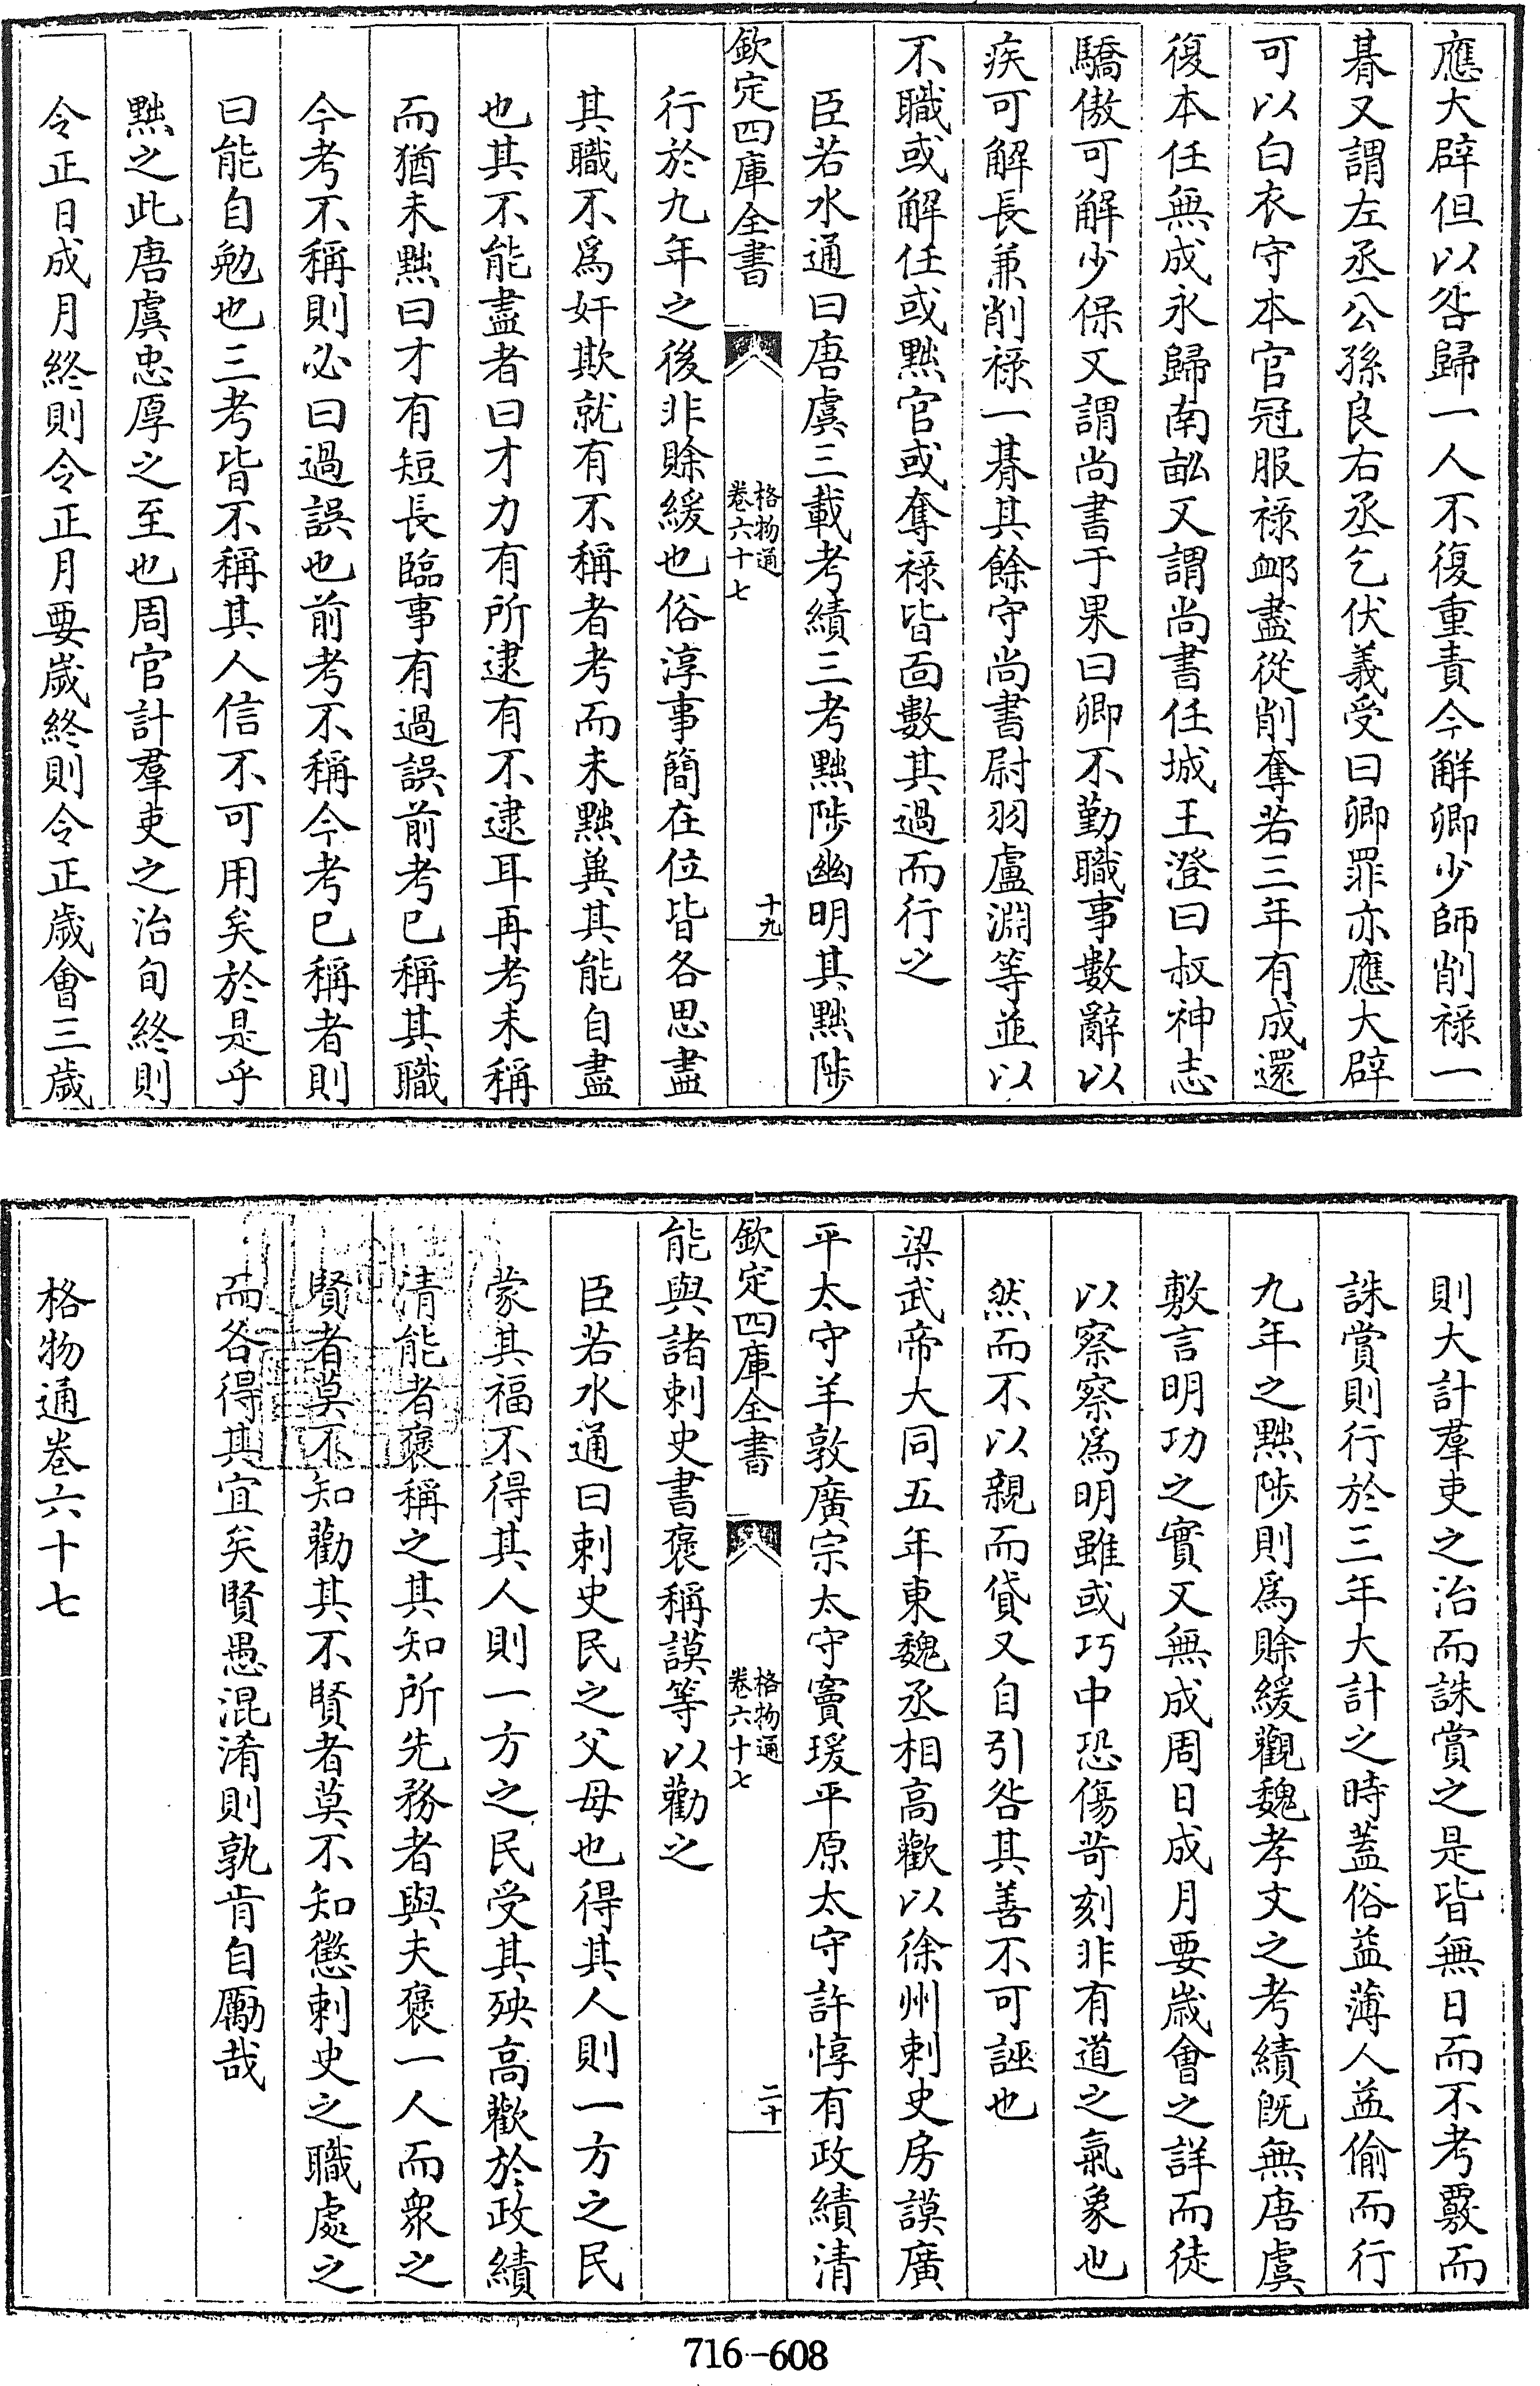 應大辟但以咎歸一人不復重責今解卿少師削祿一
朞又謂左丞公孫良右丞乞伏義受曰卿罪亦應大辟
可以白衣守本官冠服祿䘏盡從削奪若三年有成還
復本任無成永歸南畝又謂尚書任城王澄曰叔神志
驕傲可解少保又謂尚書于果曰卿不勤職事數辭以
疾可解長兼削祿一朞其餘守尚書尉羽盧淵等並以
不職或解任或黜官或奪祿皆面數其過而行之
臣若水通曰唐虞三載考績三考黜陟幽明其黜陟
欽定四庫全書
格物通
卷六十七
十九
行於九年之後非賖緩也俗淳事簡在位皆各思盡
其職不爲奸欺就有不稱者考而未黜兾其能自盡
也其不能盡者曰才力有所逮有不逮耳再考未稱
而猶未黜曰才有短長臨事有過誤前考已稱其職
今考不稱則必曰過誤也前考不稱今考已稱者則
曰能自勉也三考皆不稱其人信不可用矣於是乎
黜之此唐虞忠厚之至也周官計羣吏之治旬終則
令正日成月終則令正月要歲終則令正歲會三歲
則大計羣吏之治而誅賞之是皆無日而不考覈而
誅賞則行於三年大計之時蓋俗益薄人益偷而行
九年之黜陟則爲賖緩觀魏孝文之考績旣無唐虞
敷言明功之實又無成周日成月要歲會之詳而徒
以察察爲明雖或巧中恐傷苛刻非有道之氣象也
然而不以親而貸又自引咎其善不可誣也
梁武帝大同五年東魏丞相高歡以徐州刺史房謨廣
平太守羊敦廣宗太守竇瑗平原太守許惇有政績清
欽定四庫全書
格物通
卷六十七
二十
能與諸刺史書褒稱謨等以勸之
臣若水通曰刺史民之父母也得其人則一方之民
蒙其福不得其人則一方之民受其殃高歡於政績
清能者褒稱之其知所先務者與夫褒一人而衆之
賢者莫不知勸其不賢者莫不知懲刺史之職處之
而各得其宜矣賢愚混淆則孰肯自勵哉
格物通卷六十七
716-608